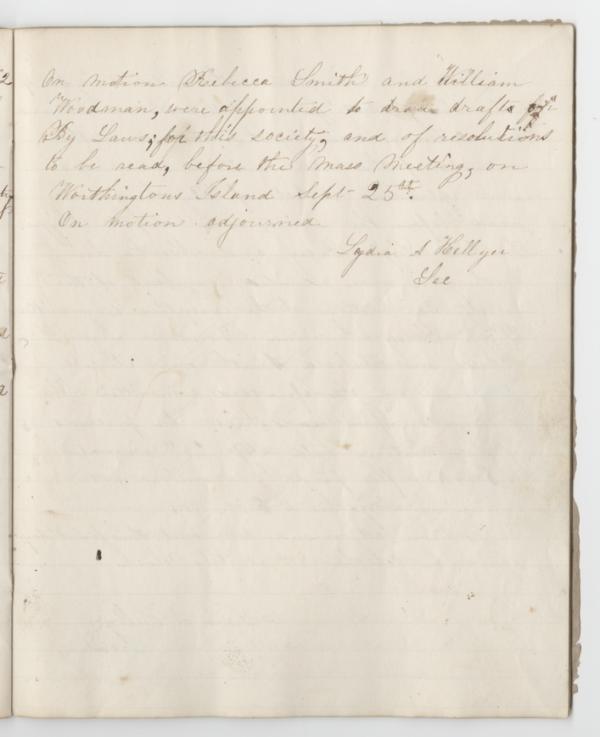 On motion Rebecca Smith and William
Woodman, were appointed to draw drafts of
By Laws; for this society, and of resolutions
to be read, before the mass meeting, on
Worthingtons Island Sept 25th.
On motion adjourned
Lydia S Hillyer
Sec